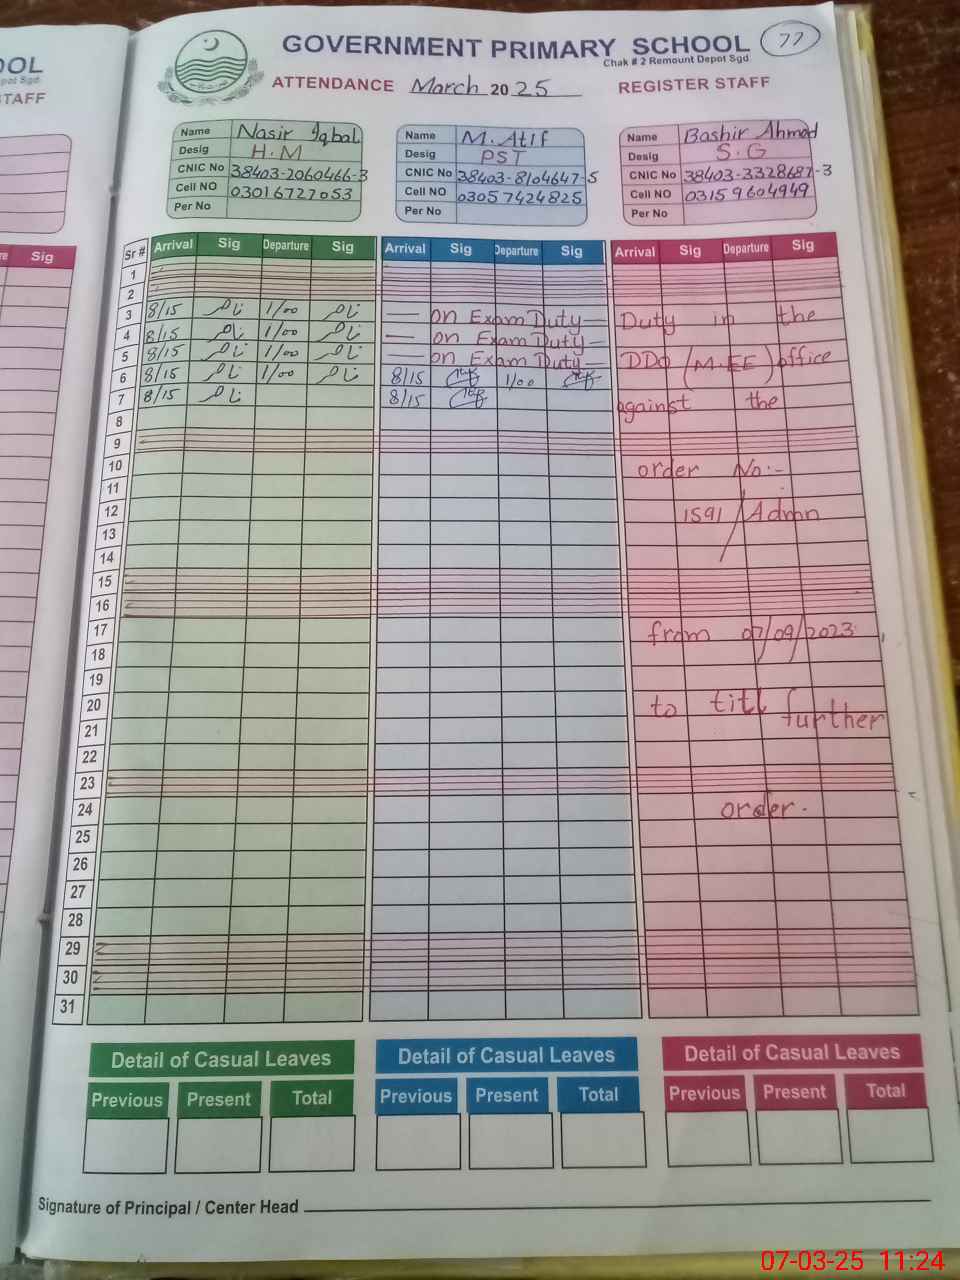 OOL
Depot Sgd
STAFF
re Sig
GOVERNMENT PRIMARY SCHOOL 77
Chak # 2 Remount Depot Sgd
ATTENDANCE March 20 25 REGISTER STAFF
Name Nasir Iqbal
Desig H.M
CNIC No 38403-2060466-3
Cell NO 03016727053
Per No
Name M. Atif
Desig PST
CNIC No 38403-8104647-5
Cell NO 03057424825
Per No
Name Bashir Ahmad
Desig S.G
CNIC No 38403-3328687-3
Cell NO 03159604949
Per No
Sr # Arrival Sig Departure Sig Arrival Sig Departure Sig Arrival Sig Departure Sig
1
2
3 8/15 ناصر 1/00 ناصر — on Exam Duty — Duty in the
4 8/15 ناصر 1/00 ناصر — on Exam Duty —
5 8/15 ناصر 1/00 ناصر — on Exam Duty — DDO (M.EE) office
6 8/15 ناصر 1/00 ناصر 8/15 1/00
7 8/15 ناصر 8/15 against the
8
9
10 order No:-
11
12 1591/Admn
13
14
15
16
17 from 07/09/2023
18
19
20 to till further
21
22
23
24 order.
25
26
27
28
29
30
31
Detail of Casual Leaves Detail of Casual Leaves Detail of Casual Leaves
Previous Present Total Previous Present Total Previous Present Total
Signature of Principal / Center Head
07-03-25 11:24